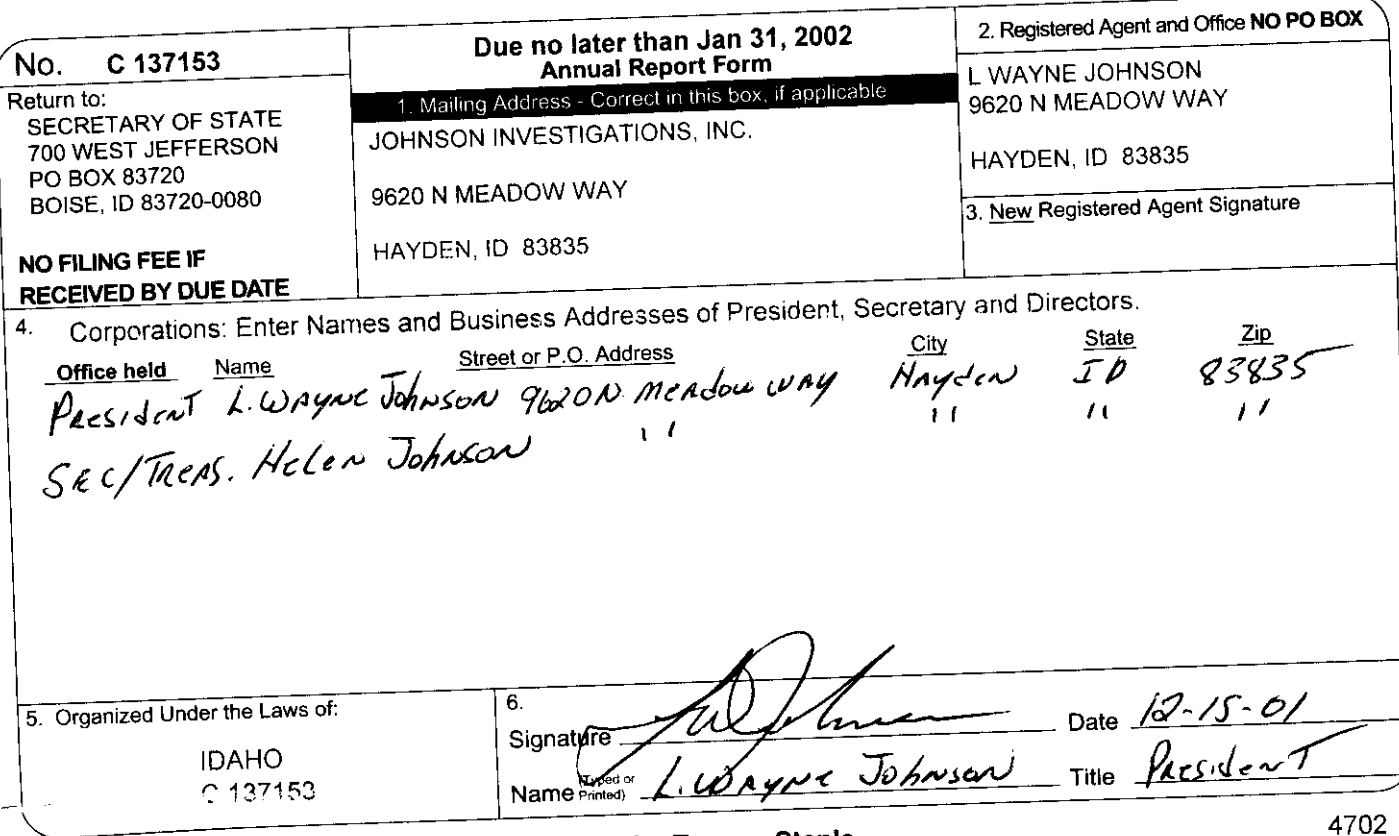 No. C 137153
Return to:
SECRETARY OF STATE
700 WEST JEFFERSON
PO BOX 83720
BOISE, ID 83720-0080
NO FILING FEE IF
RECEIVED BY DUE DATE
Due no later than Jan 31, 2002
Annual Report Form
1. Mailing Address - Correct in this box, if applicable
JOHNSON INVESTIGATIONS, INC.
9620 N MEADOW WAY
HAYDEN, ID 83835
2. Registered Agent and Office NO PO BOX
L WAYNE JOHNSON
9620 N MEADOW WAY
HAYDEN, ID 83835
3. New Registered Agent Signature
4. Corporations: Enter Names and Business Addresses of President, Secretary and Directors.
Office held Name Street or P.O. Address City State Zip
President L. Wayne Johnson 9620 N. Meadow Way Hayden ID 83835
Sec/Treas. Helen Johnson " " " "
5. Organized Under the Laws of:
IDAHO
C 137153
6.
Signature Date 12-15-01
Name (Typed or Printed) L. Wayne Johnson Title President
4702